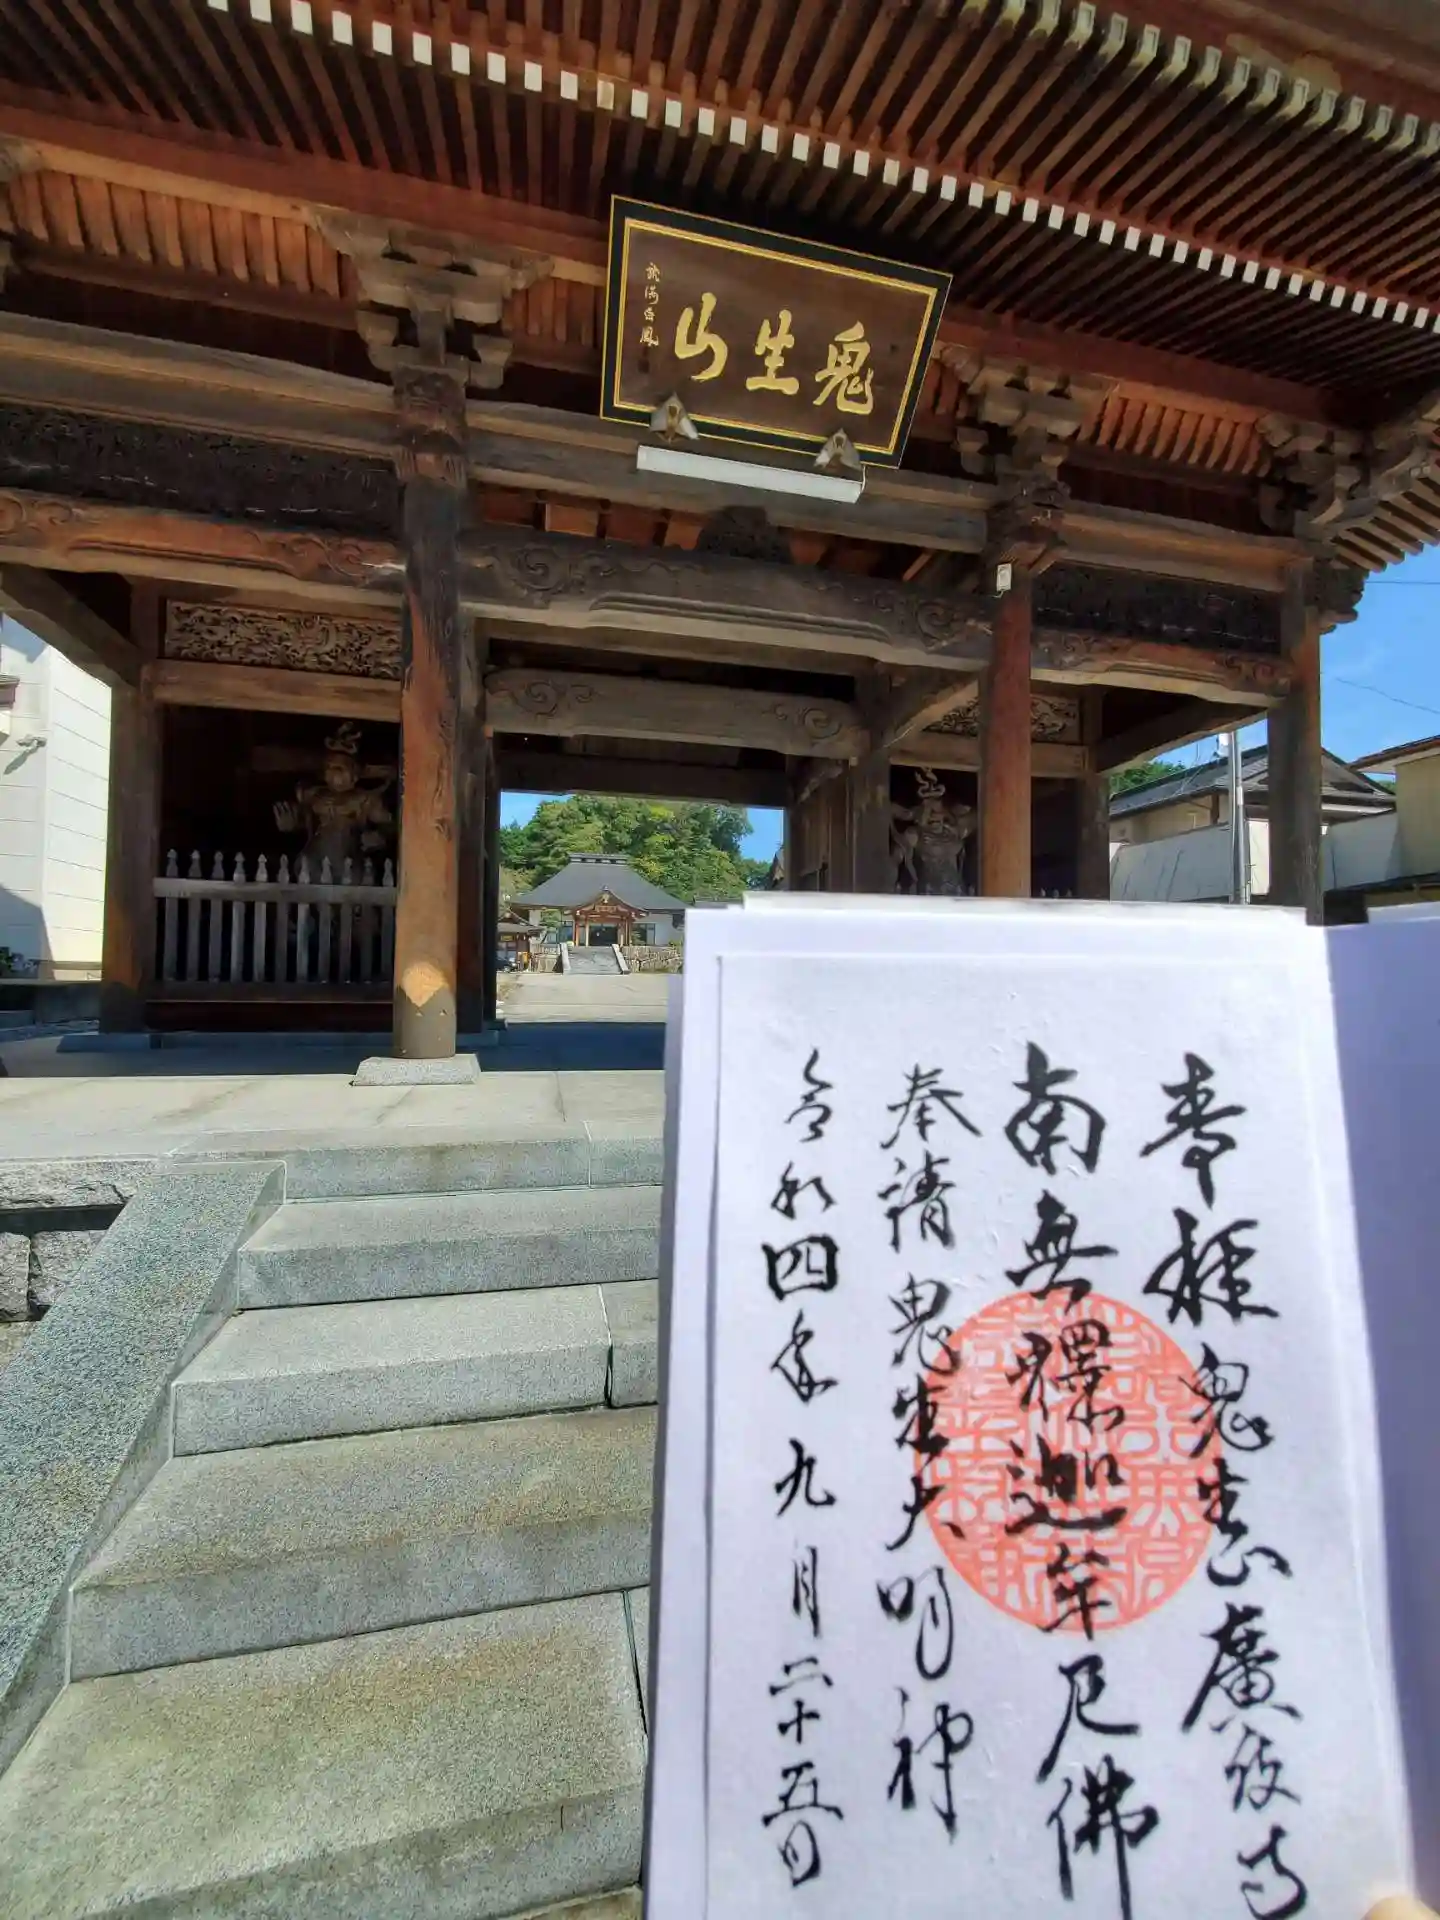 鬼生山
奉拝 鬼生山 廣度寺
南無釋迦牟尼佛
奉請 鬼生大明神
令和四年九月二十五日